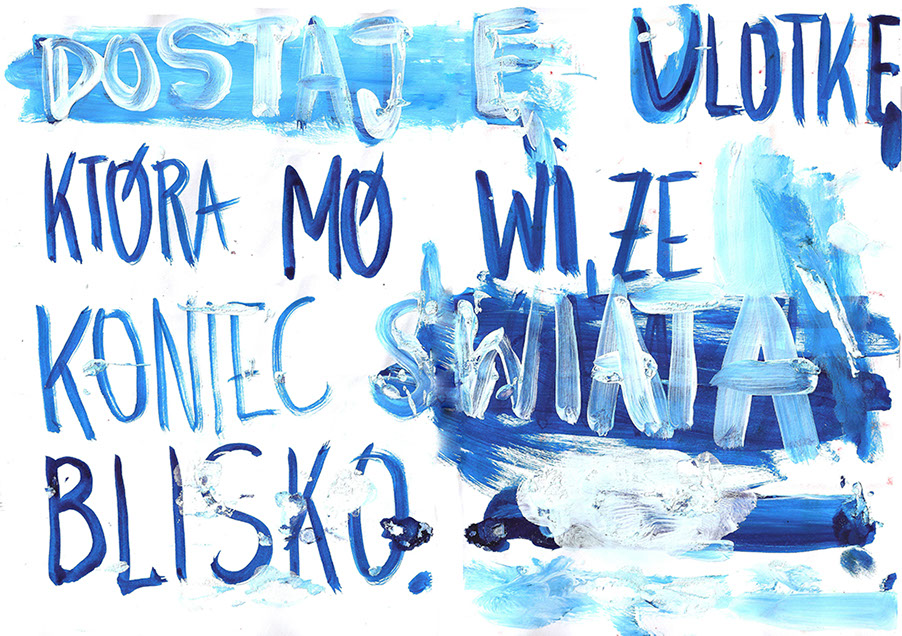 DOSTAJĘ ULOTKĘ
KTØRA MØWI, ŻE
KONIEC ŚWIATA
BLISKO.